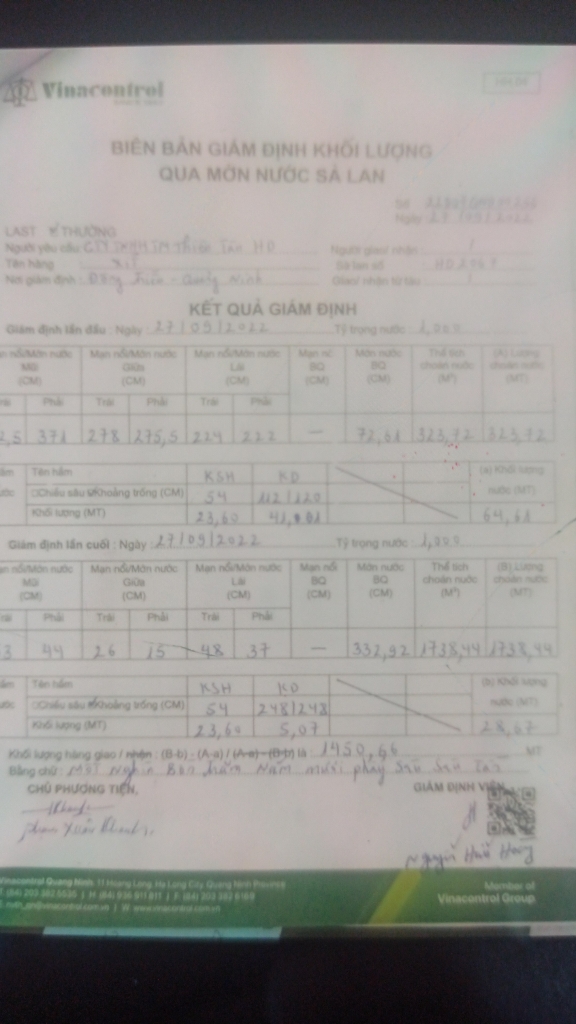 Vinacontrol
BIÊN BẢN GIÁM ĐỊNH KHỐI LƯỢNG
QUA MỚN NƯỚC SÀ LAN
Số
Ngày: 27/09/2022
LAST THƯỜNG
Người yêu cầu: CTY TNHH TM Thiên Tân HD Người giao/ nhận : /
Tên hàng : XIT Sà lan số : HD 2969
Nơi giám định : Đông Triều - Quảng Ninh Giao/ nhận từ tàu : /
KẾT QUẢ GIÁM ĐỊNH
Giám định lần đầu : Ngày : 27/09/2022 Tỷ trọng nước : 1,000
Mạn nổi/Mớn nước Mạn nổi/Mớn nước Mạn nổi/Mớn nước Mạn nổi Mớn nước Thể tích (A) Lượng
Mũi Giữa Lái BQ BQ choán nước choán nước
(CM) (CM) (CM) (CM) (CM) (M³) (MT)
Phải Trái Phải Trái Phải
2,5 371 278 275,5 224 222 — 72,61 323,72 323,72
Tên hầm KSH KD (a) Khối lượng
□Chiều sâu Khoảng trống (CM) 54 112/120 nước (MT)
Khối lượng (MT) 23,60 41,01 64,61
Giám định lần cuối : Ngày : 27/09/2022 Tỷ trọng nước : 1,000
Mạn nổi/Mớn nước Mạn nổi/Mớn nước Mạn nổi/Mớn nước Mạn nổi Mớn nước Thể tích (B) Lượng
Mũi Giữa Lái BQ BQ choán nước choán nước
(CM) (CM) (CM) (CM) (CM) (M³) (MT)
Trái Phải Trái Phải Trái Phải
3 44 26 15 48 37 — 332,92 1738,44 1738,44
Tên hầm KSH KD (b) Khối lượng
□Chiều sâu Khoảng trống (CM) 54 248/248 nước (MT)
Khối lượng (MT) 23,60 5,07 28,67
Khối lượng hàng giao / nhận : (B-b) - (A-a) / (A-a) - (B-b) là : 1450,66 MT
Bằng chữ : Một Nghìn Bốn trăm Năm mươi phẩy Sáu Sáu Tấn
CHỦ PHƯƠNG TIỆN, GIÁM ĐỊNH VIÊN,
Phạm Xuân Khanh
Nguyễn Hoàng
Vinacontrol Quang Ninh: 11 Hoang Long, Ha Long City, Quang Ninh Province
Member of
Vinacontrol Group
W: www.vinacontrol.com.vn